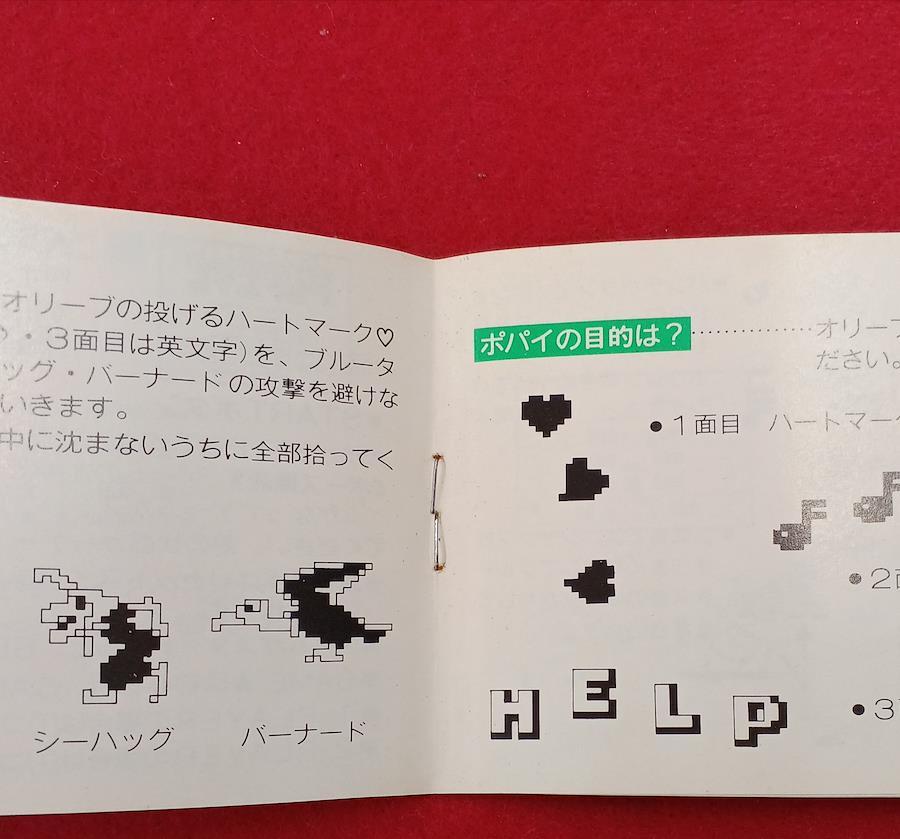 オリーブの投げるハートマーク♡
・3面目は英文字)を、ブルータ
ッグ・バーナードの攻撃を避けな
いきます。
中に沈まないうちに全部拾ってく
シーハッグ
バーナード
ポパイの目的は？ ……………オリーブ
ださい。
●1面目 ハートマーク
●2面
HELP
●3